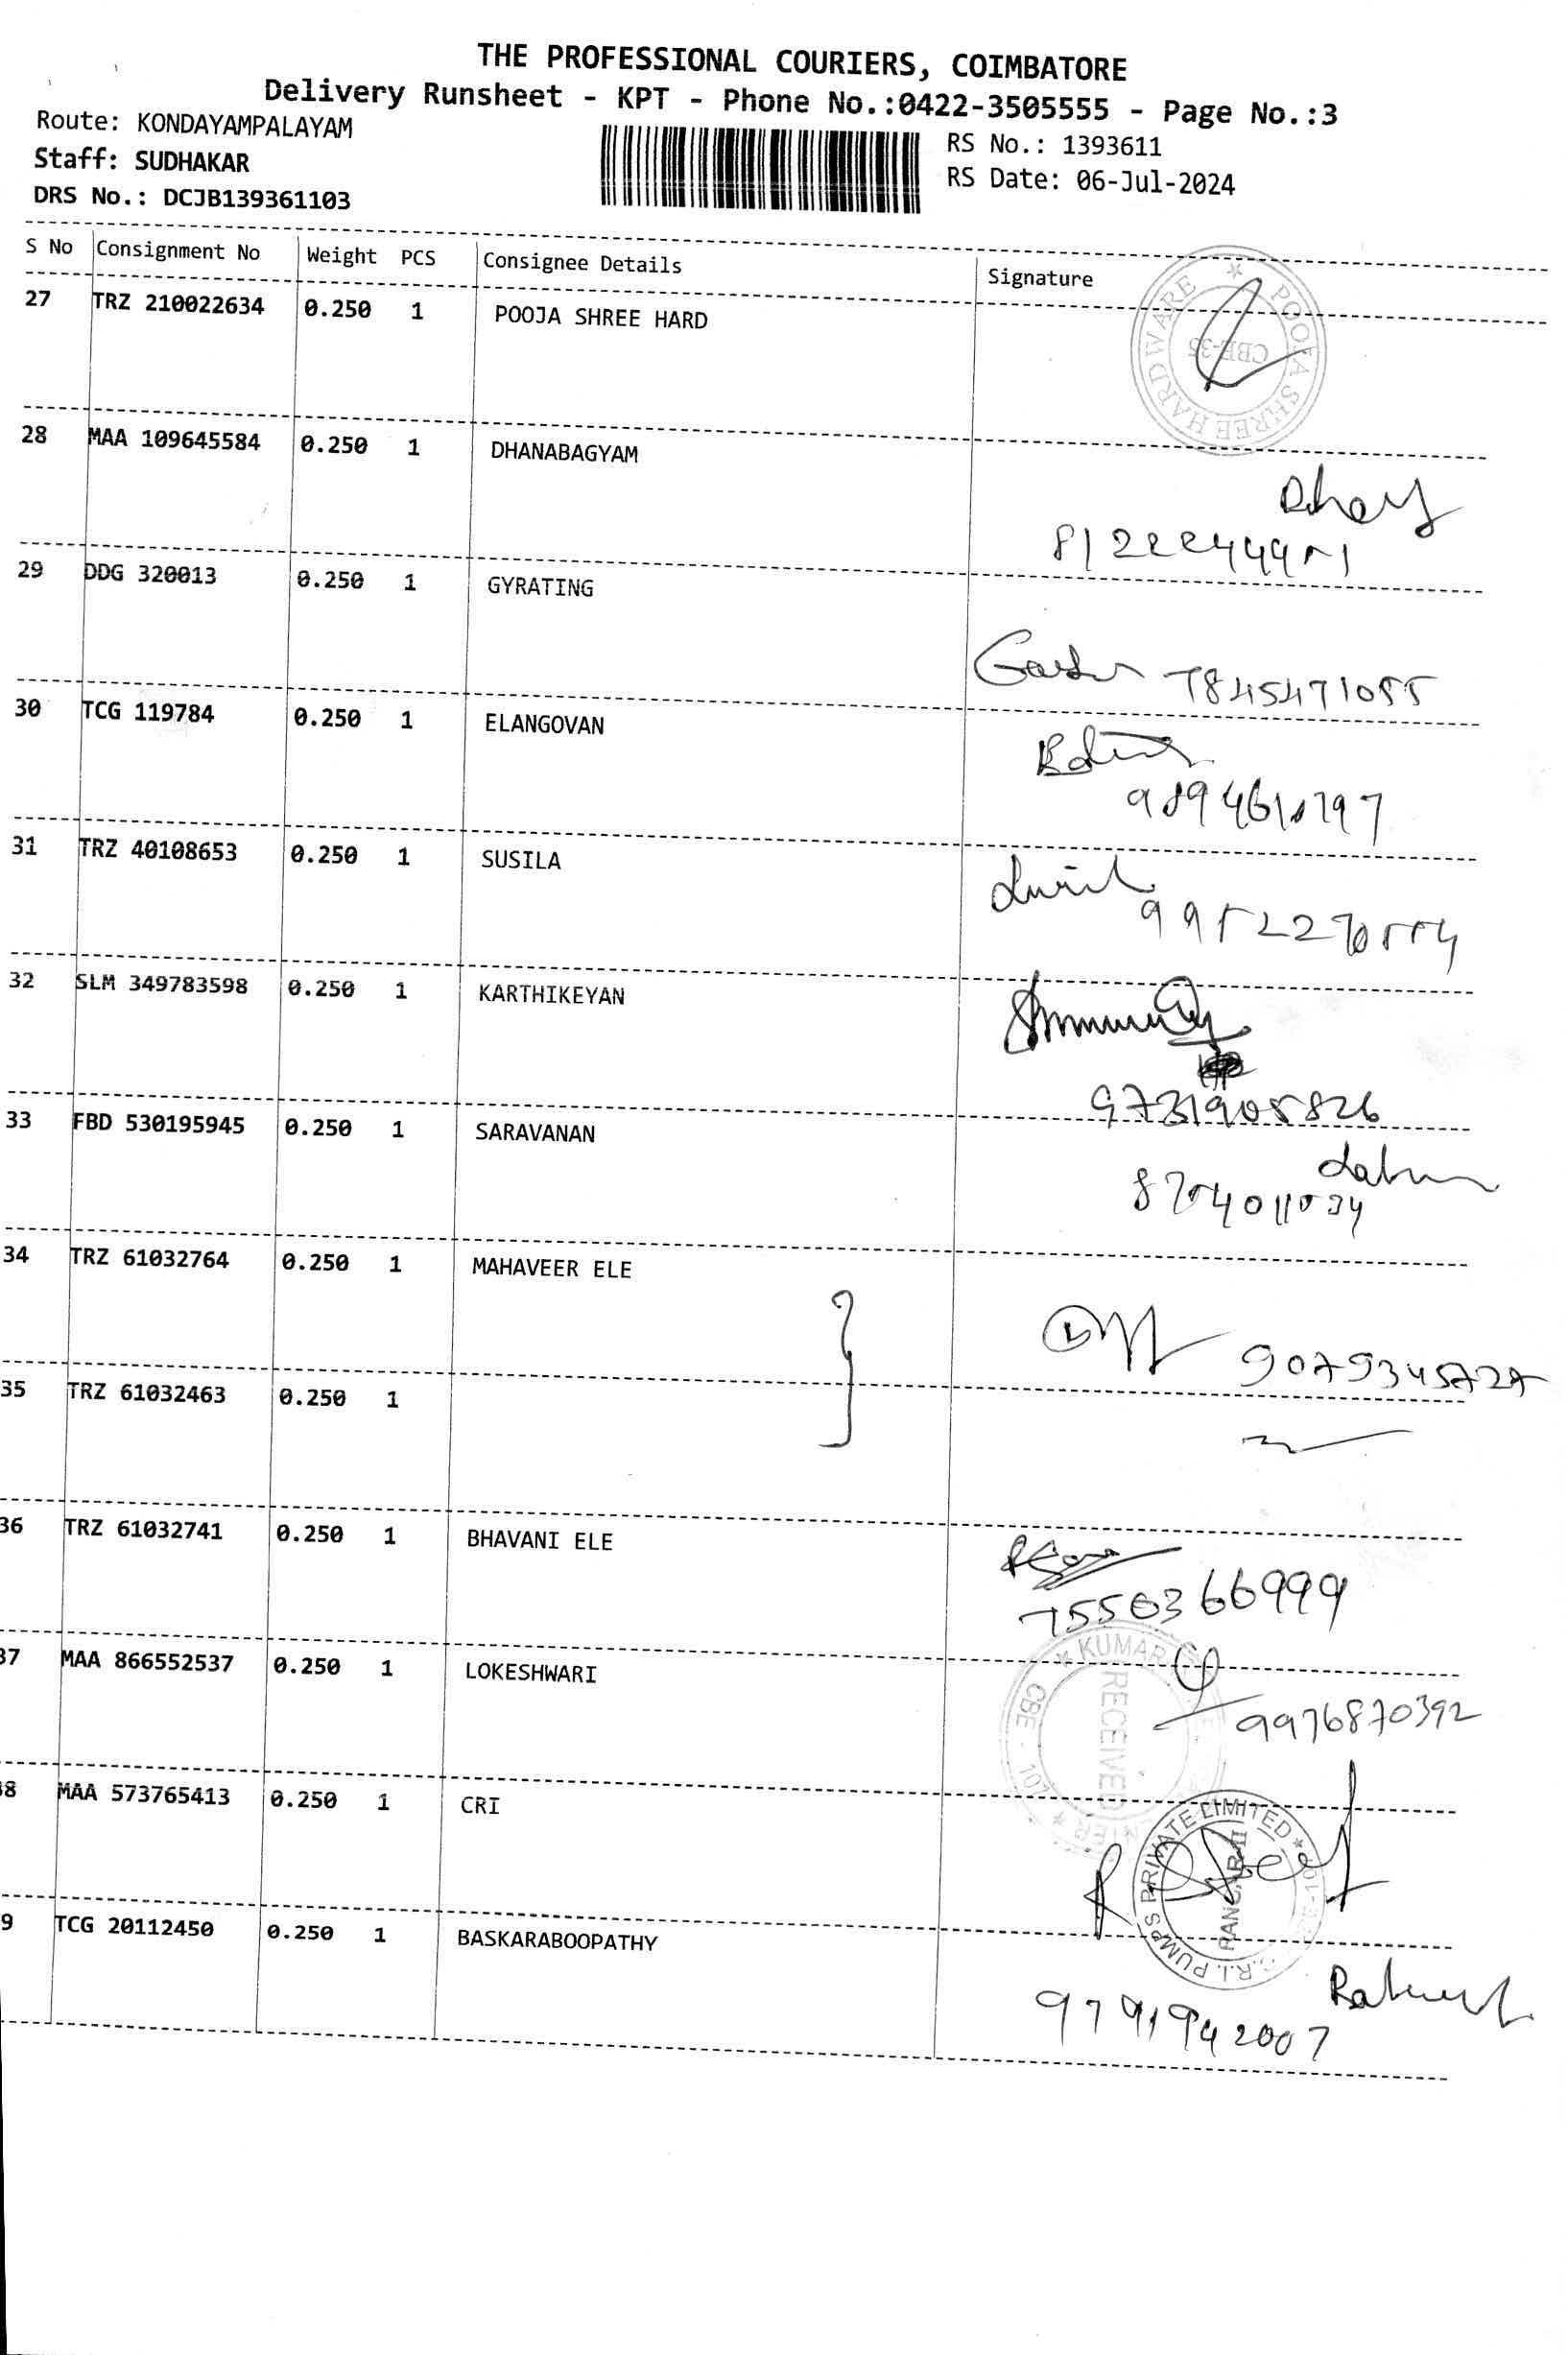 THE PROFESSIONAL COURIERS, COIMBATORE
Delivery Runsheet - KPT - Phone No.:0422-3505555 - Page No.:3
Route: KONDAYAMPALAYAM
Staff: SUDHAKAR
DRS No.: DCJB139361103
RS No.: 1393611
RS Date: 06-Jul-2024
S No Consignment No Weight PCS Consignee Details Signature
27 TRZ 210022634 0.250 1 POOJA SHREE HARD
POOJA SHREE HARDWARE
CBE-35
28 MAA 109645584 0.250 1 DHANABAGYAM
29 DDG 320013 0.250 1 GYRATING
7845471055
30 TCG 119784 0.250 1 ELANGOVAN
31 TRZ 40108653 0.250 1 SUSILA
32 SLM 349783598 0.250 1 KARTHIKEYAN
9731905826
33 FBD 530195945 0.250 1 SARAVANAN
34 TRZ 61032764 0.250 1 MAHAVEER ELE
9079345727
35 TRZ 61032463 0.250 1
36 TRZ 61032741 0.250 1 BHAVANI ELE
7550366999
37 MAA 866552537 0.250 1 LOKESHWARI
KUMAR
RECEIVED
CBE - 107
9976870392
38 MAA 573765413 0.250 1 CRI
C.R.I. PUMPS PRIVATE LIMITED
39 TCG 20112450 0.250 1 BASKARABOOPATHY
9791942007